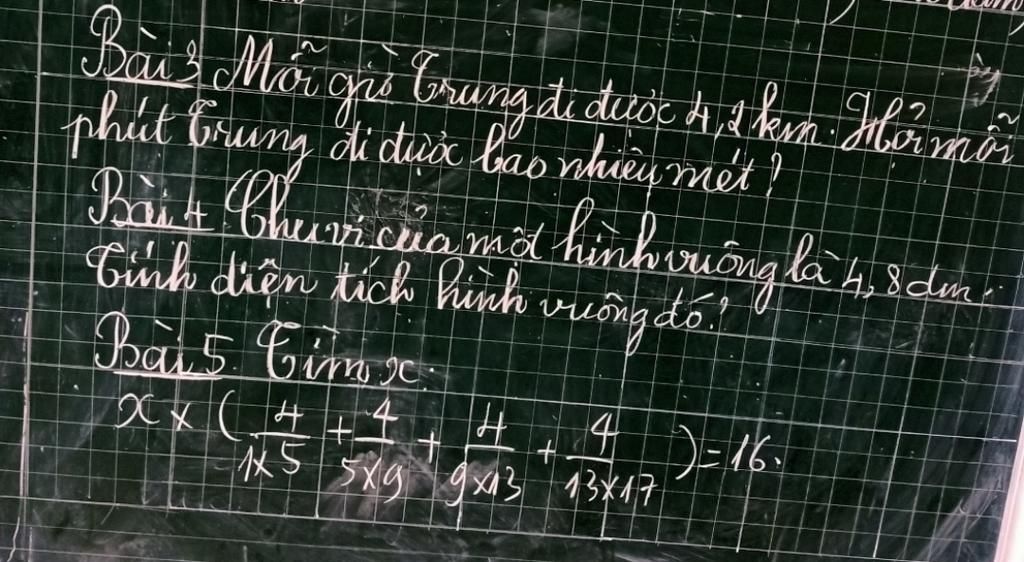 Bài 3 Mỗi giờ Trung đi được 4,2 km. Hỏi mỗi
phút Trung đi được bao nhiêu mét?
Bài 4 Chu vi của một hình vuông là 4,8 dm.
Tính diện tích hình vuông đó?
Bài 5. Tìm x:
x × ( 4/1×5 + 4/5×9 + 4/9×13 + 4/13×17 ) = 16.